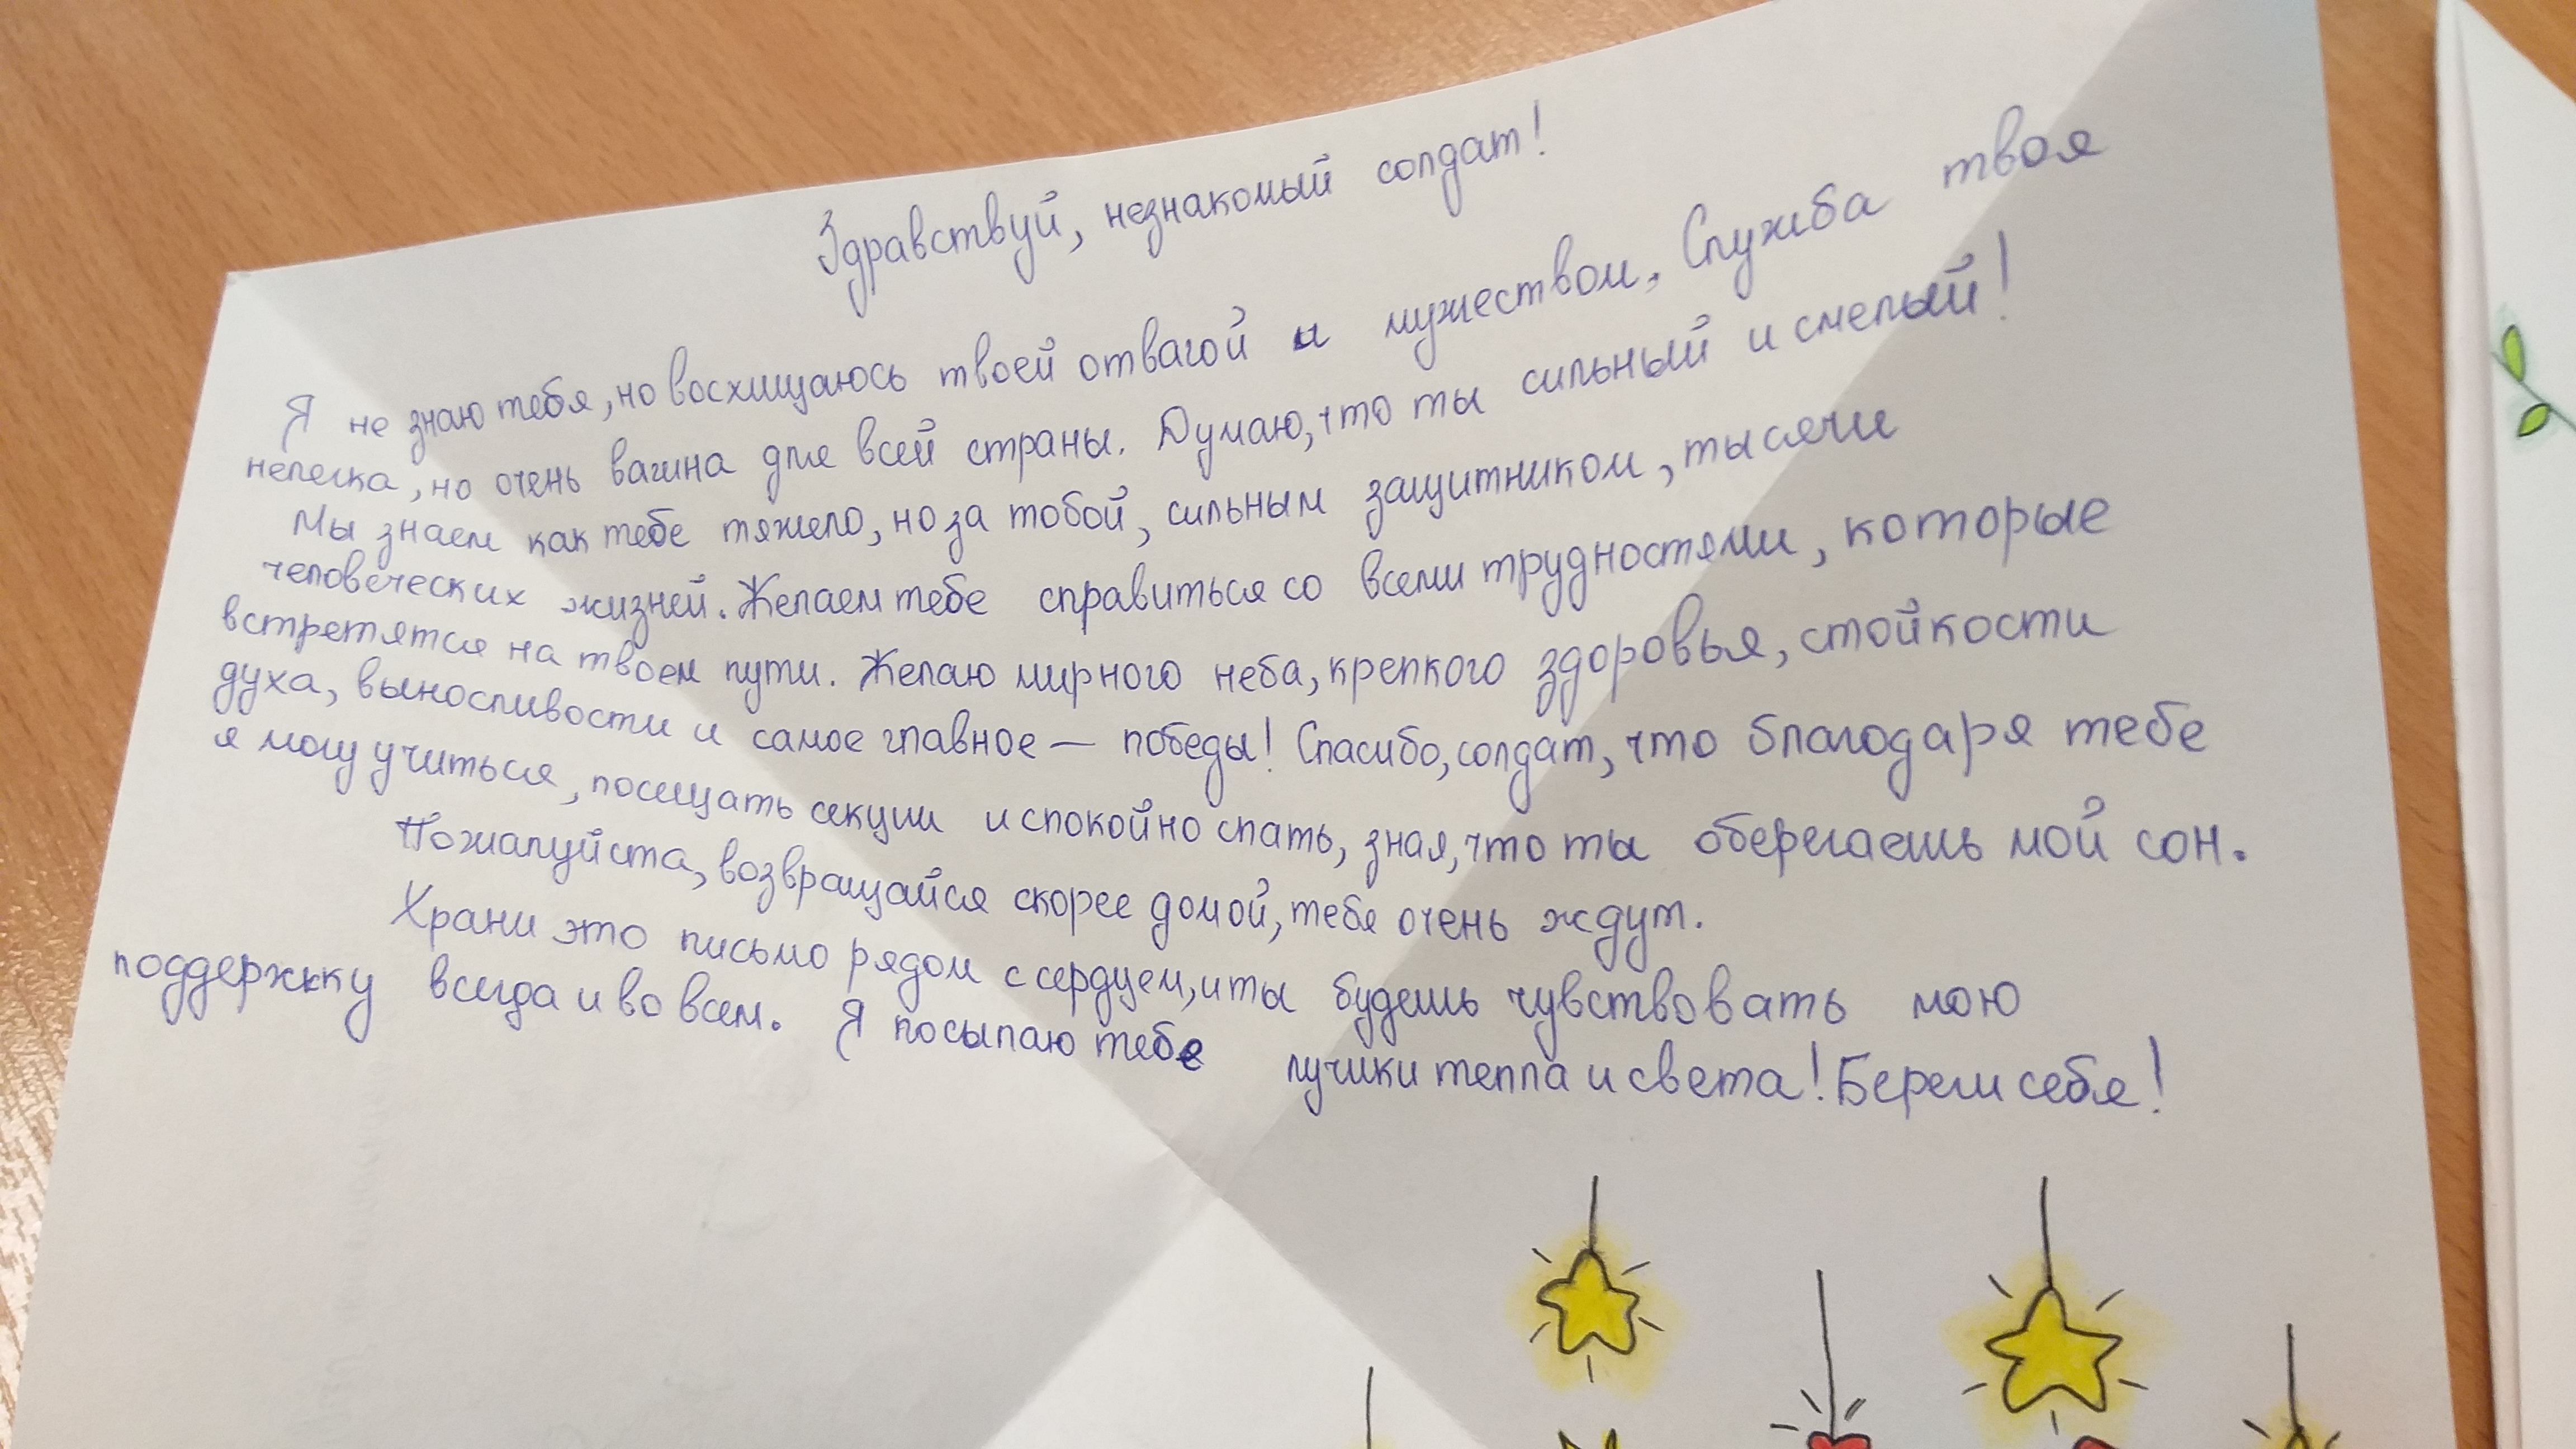 Здравствуй, незнакомый солдат!
Я не знаю тебя, но восхищаюсь твоей отвагой и мужеством. Служба твоя
нелегка, но очень важна для всей страны. Думаю, что ты сильный и смелый!
Мы знаем как тебе тяжело, но за тобой, сильным защитником, тысячи
человеческих жизней. Желаем тебе справиться со всеми трудностями, которые
встретятся на твоем пути. Желаю мирного неба, крепкого здоровья, стойкости
духа, выносливости и самое главное – победы! Спасибо, солдат, что благодаря тебе
я могу учиться, посещать секции и спокойно спать, зная, что ты оберегаешь мой сон.
Пожалуйста, возвращайся скорее домой, тебя очень ждут.
Храни это письмо рядом с сердцем, и ты будешь чувствовать мою
поддержку всегда и во всем. Я посылаю тебе лучики тепла и света! Береги себя!